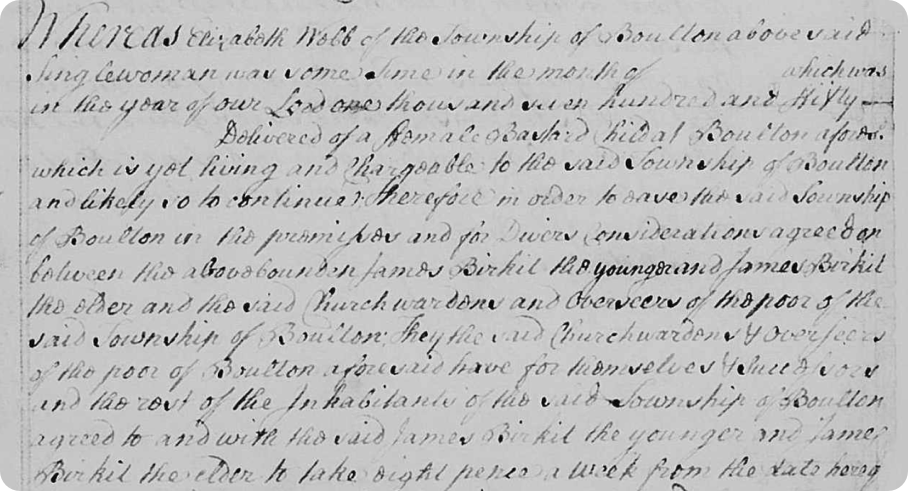 Whereas Elizabeth Webb of the Township of Boulton above said
Singlewoman was some time in the month of which was
in the year of our Lord one thousand seven hundred and fifty
Delivered of a Female Bastard Child at Boulton afores:d
which is yet living and Chargeable to the said Township of Boulton
and likely so to continue: Therefore in order to ease the said Township
of Boulton in the premisses and for Divers Considerations agreed on
between the abovebounden James Birkit the younger and James Birkit
the elder and the said Churchwardens and Overseers of the poor of the
said Township of Boulton; they the said Churchwardens & Overseers
of the poor of Boulton aforesaid have for themselves & Successors
and the rest of the Inhabitants of the said Township of Boulton
agreed to and with the said James Birkit the younger and James
Birkit the elder to take eight pence a week from the date hereof